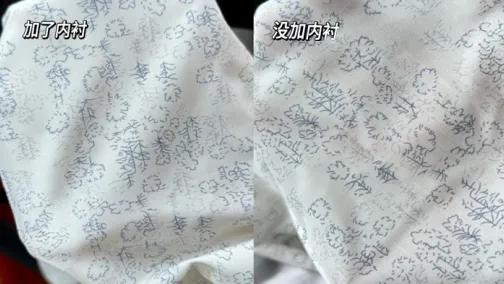 加了内衬
没加内衬